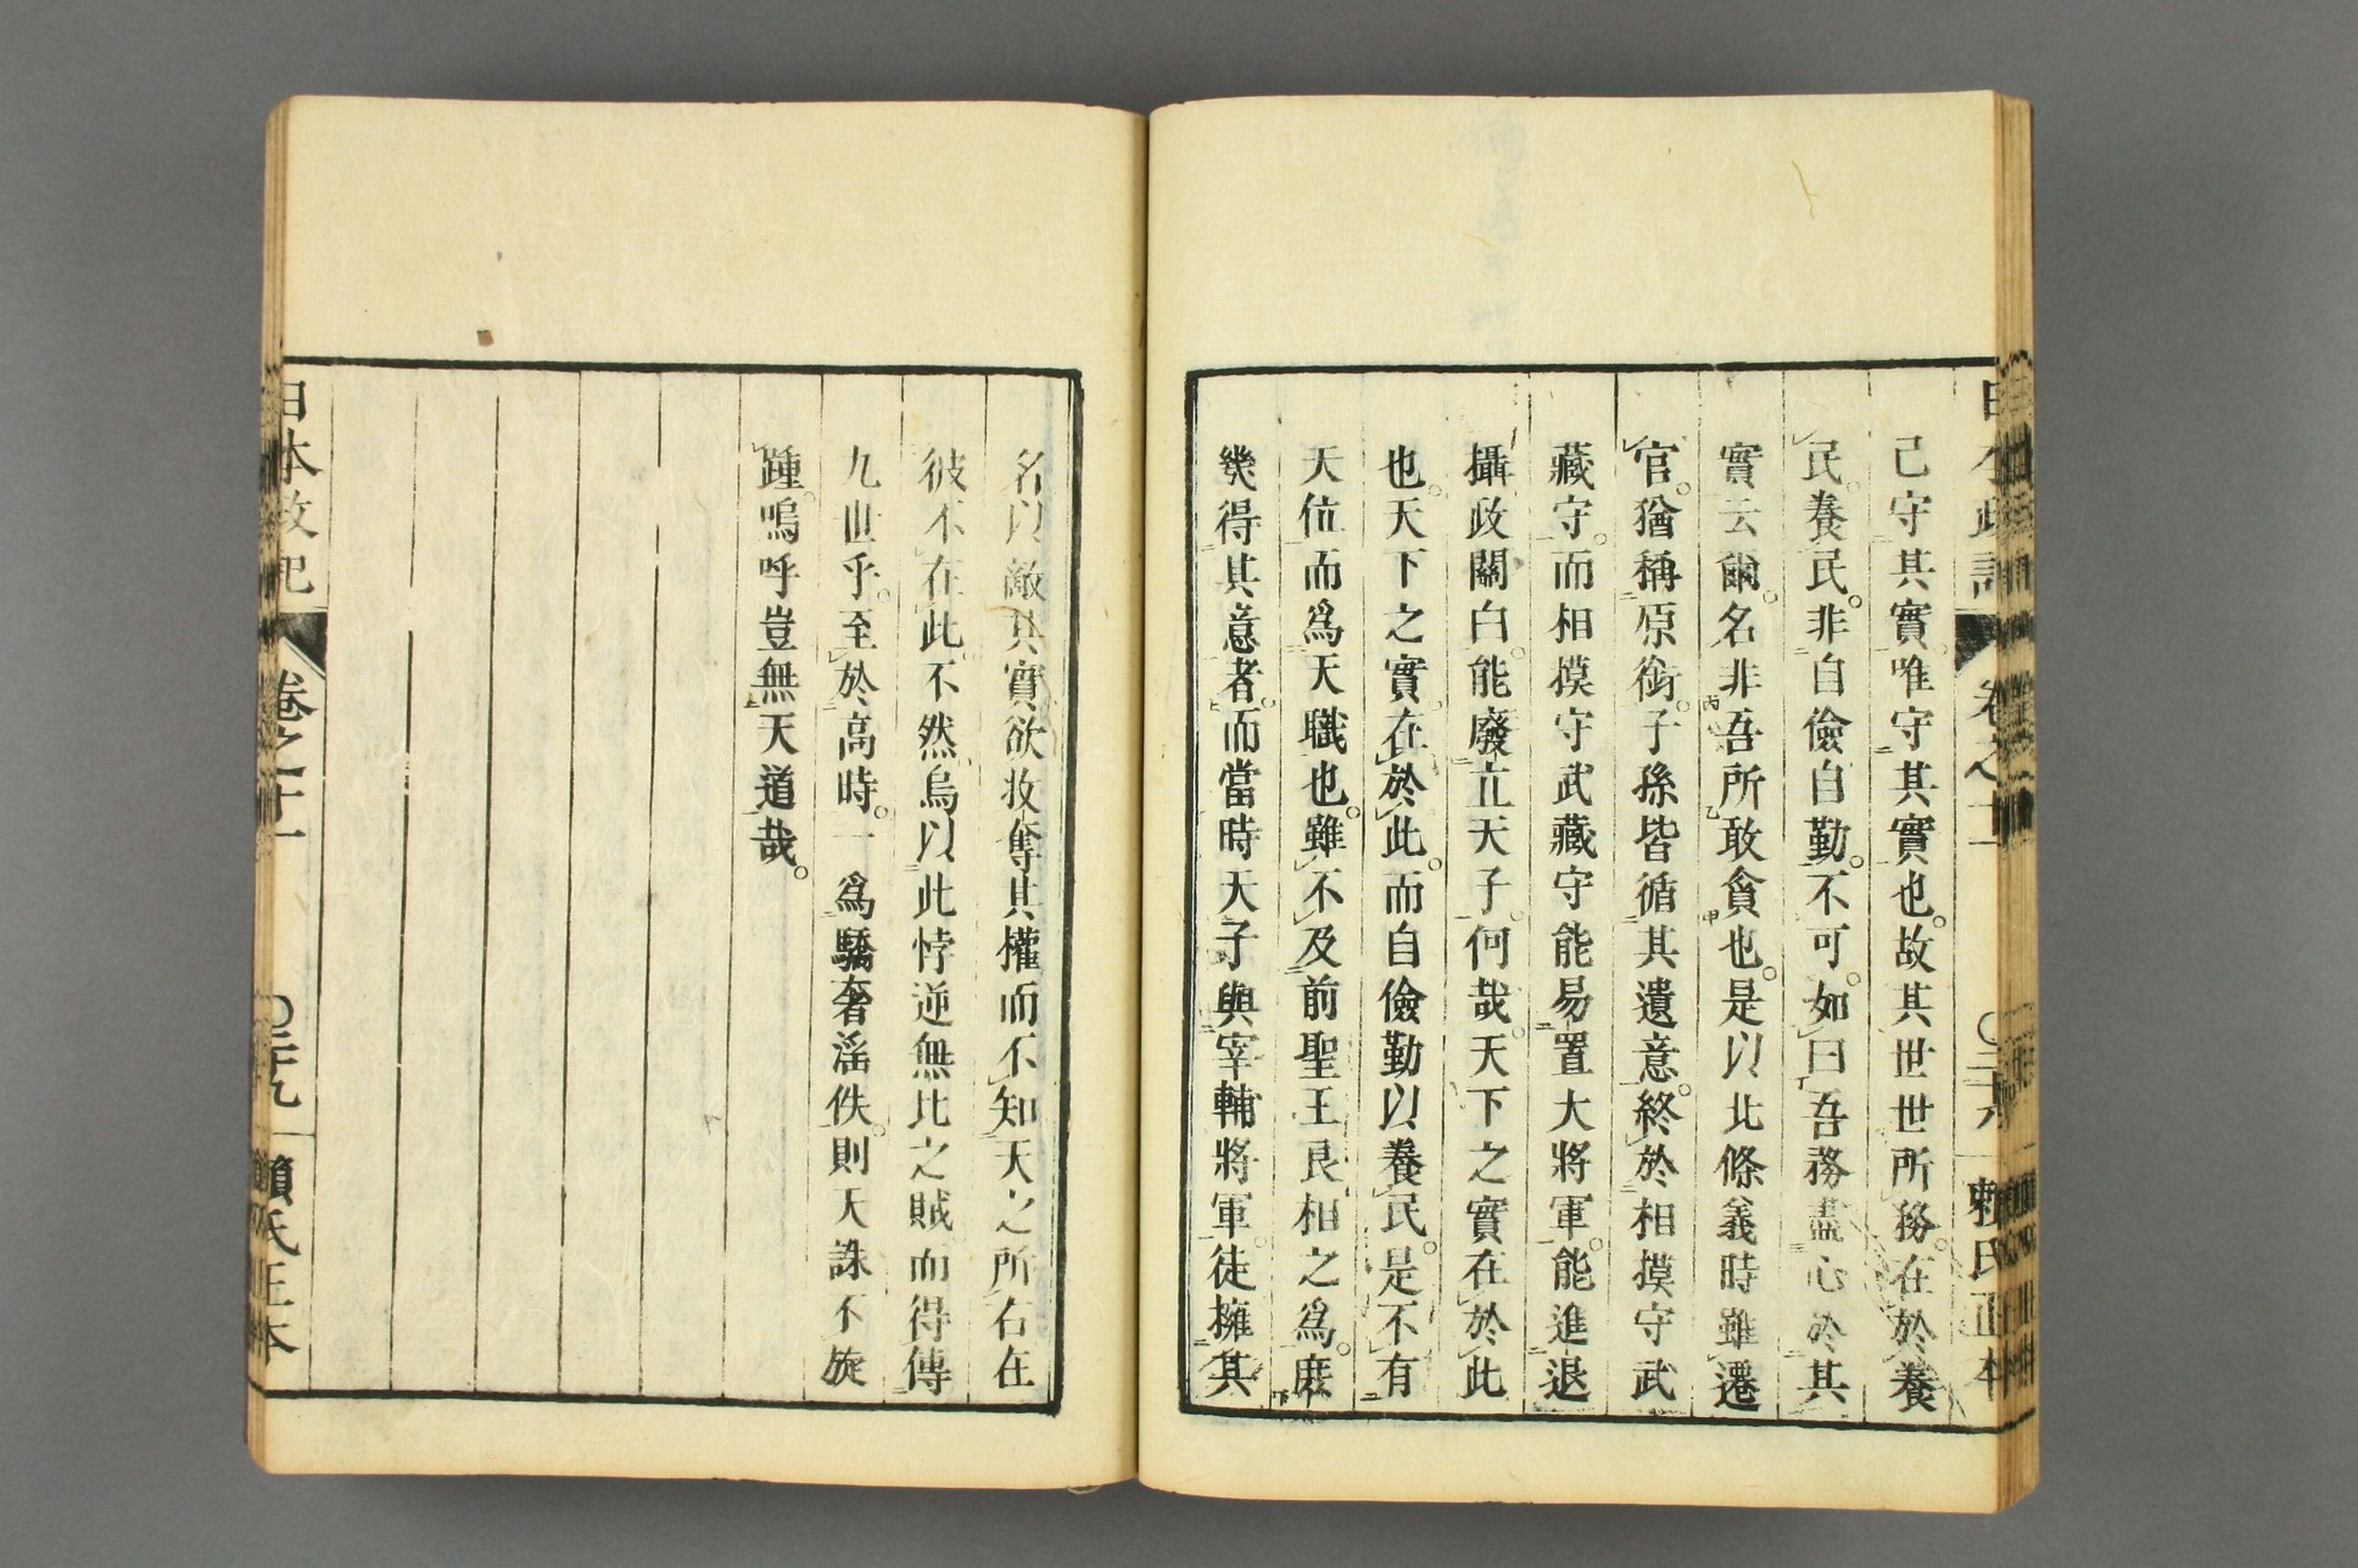 己守其實唯守其實也。故其世世所務。在於養
民。養民。非自儉自勤。不可。如曰吾務盡心於其
實云爾。名非吾所敢貪也。是以北條義時雖遷
官。猶稱原銜。子孫皆循其遺意。終於相摸守武
藏守。而相摸守武藏守能易置大將軍。能進退
攝政關白。能廢立天子。何哉。天下之實在於此
也。天下之實。在於此。而自儉勤以養民。是不有
天位而爲天職也。雖不及前聖王良相之爲。庶
幾得其意者。而當時天子與宰輔將軍。徒擁其
名以敵其實欲收奪其權而不知天之所右在
彼不在此。不然烏以此悖逆無比之賊而得傳
九世乎。至於高時。一爲驕奢滛佚。則天誅不旋
踵。嗚呼豈無天道哉。
日本政記
卷之十一
〇二十九
賴氏正本